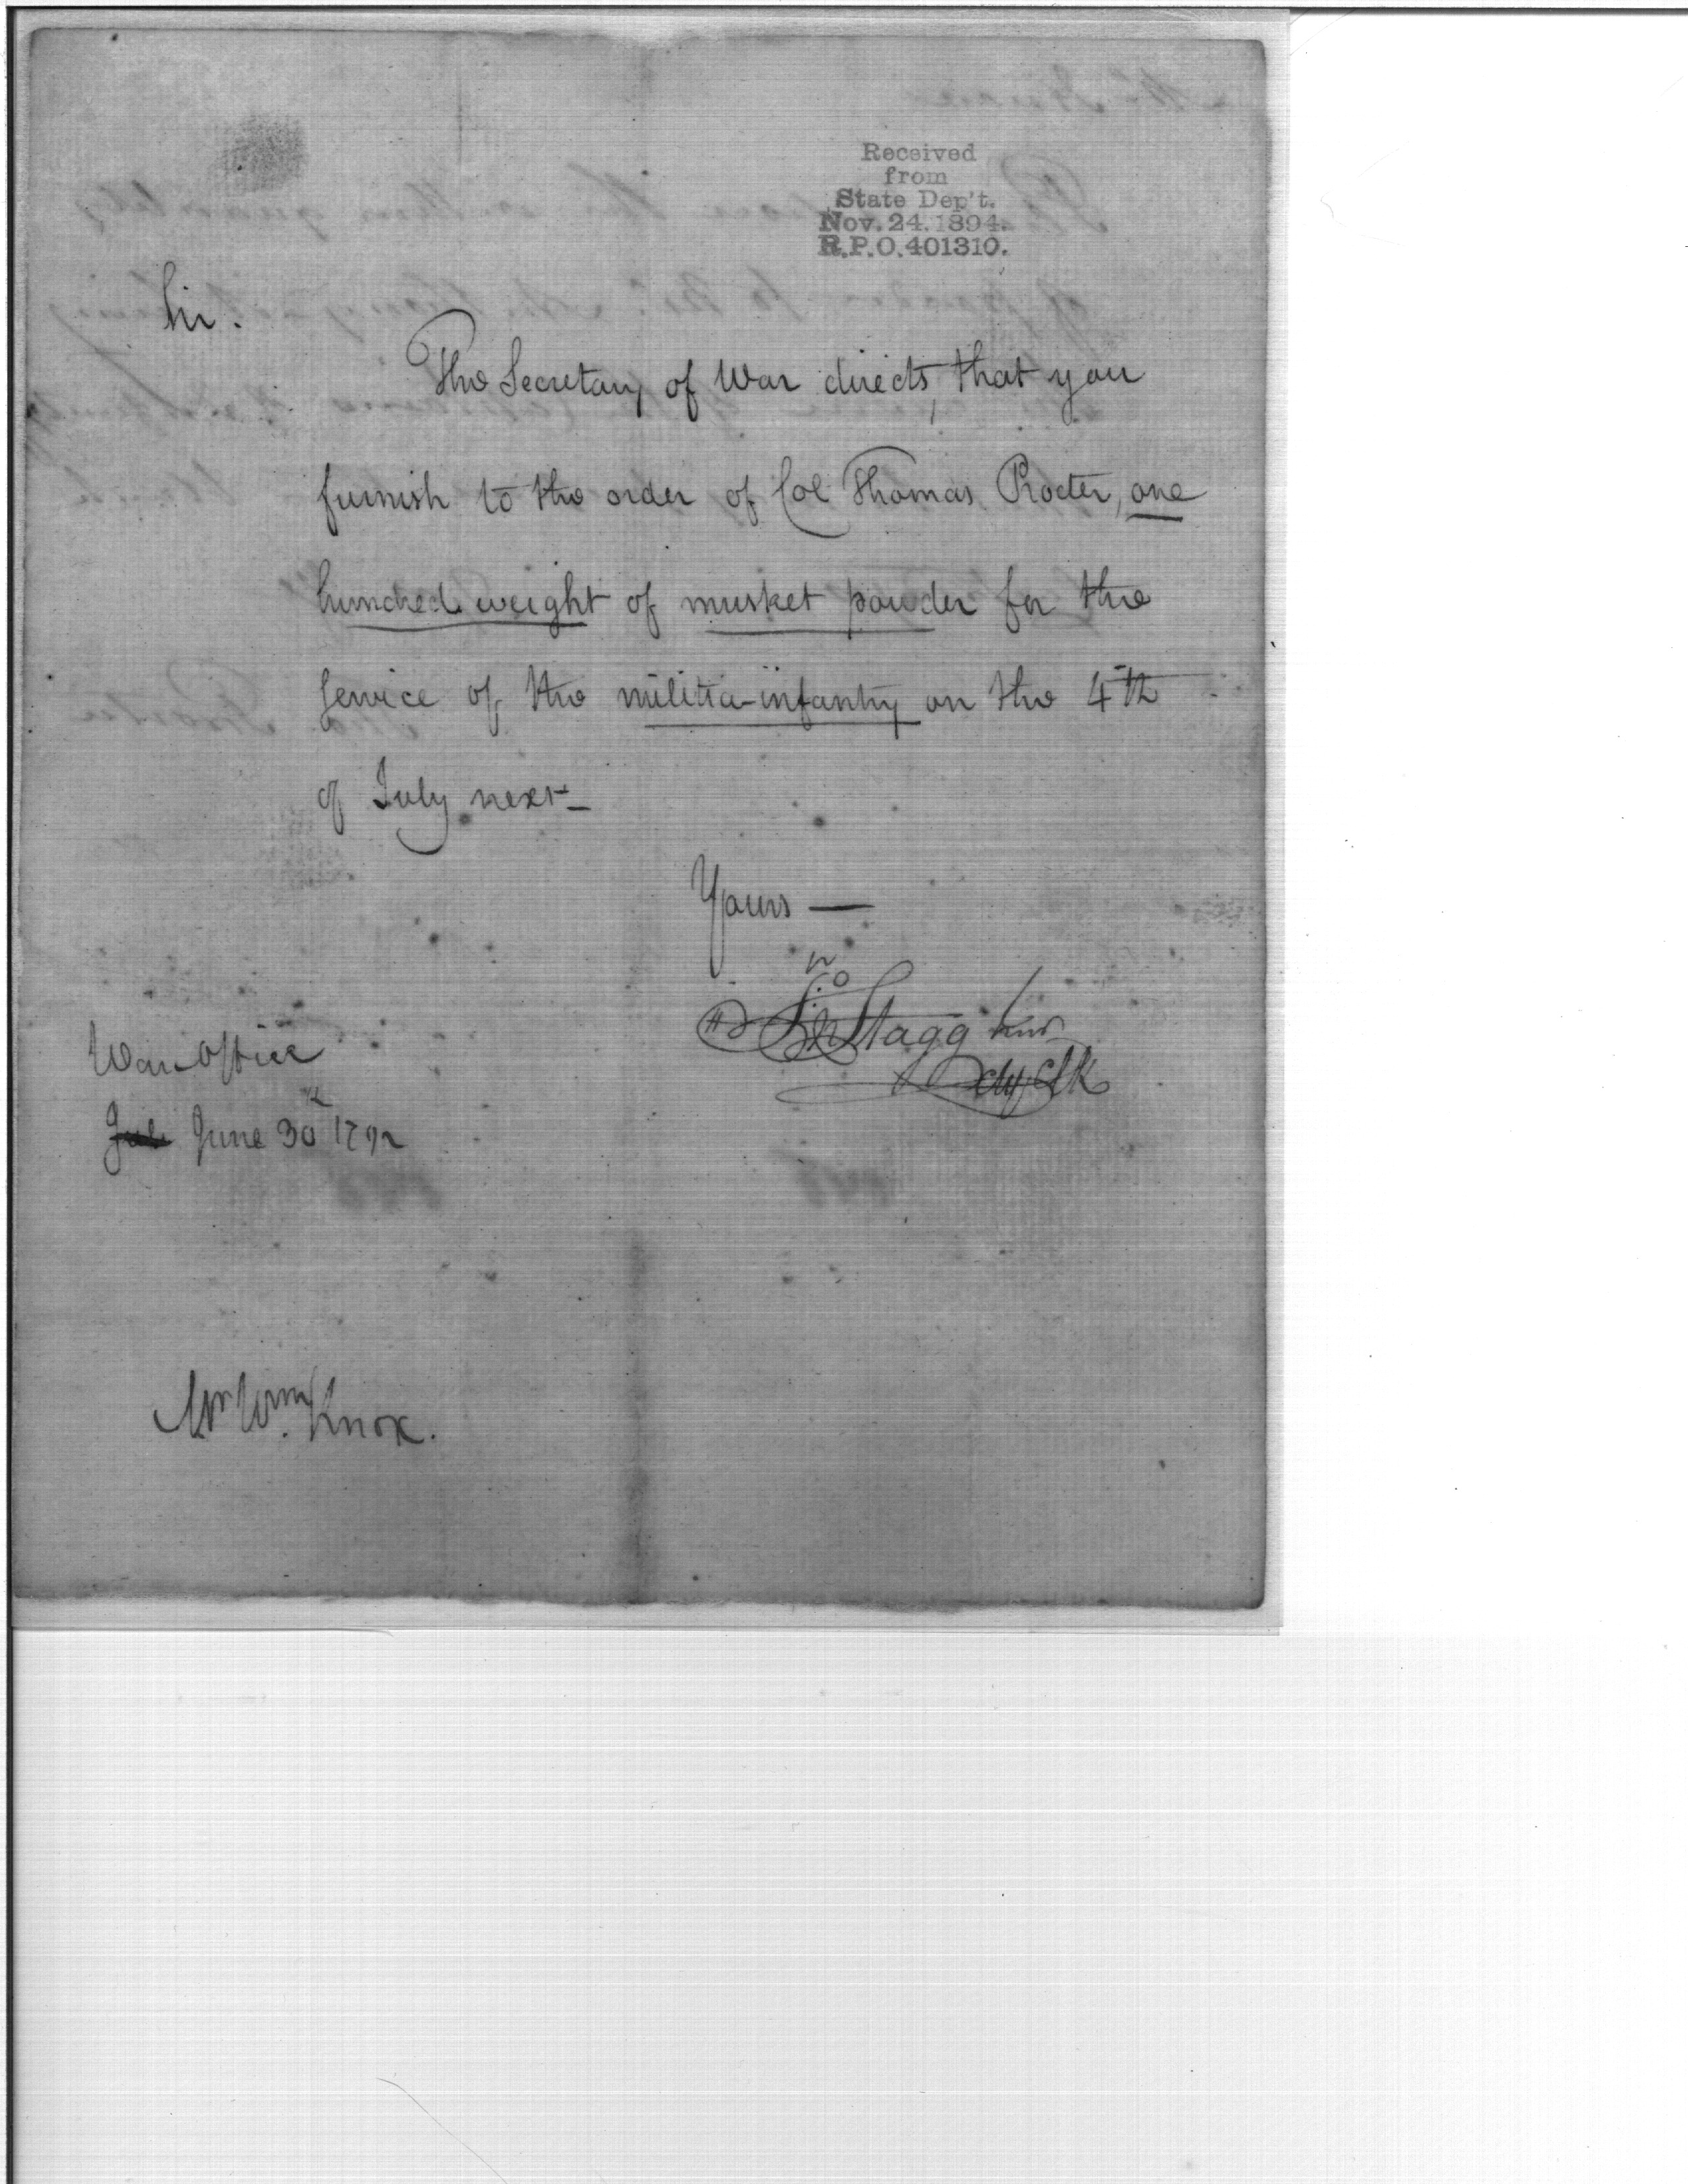 Received
from
State Dep't.
Nov. 24. 1894.
R.P.O. 401310.
Sir.
The Secretary of War directs, that you
furnish to the order of Col Thomas Procter, one
hundred weight of musket powder for the
service of the militia-infantry on the 4th
of July next_
Yours —
Jno Stagg Junr
Chf Clk
War Office
June 30th 1792
Mr Wm. Knox.